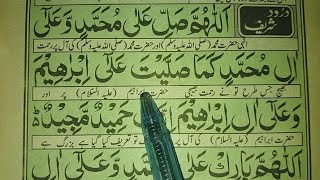 درود شریف
اَللّٰهُمَّ صَلِّ عَلٰی مُحَمَّدٍ وَّعَلٰٓی
الٰہی حضرت محمد (صلی اللہ علیہ وسلم) اور حضرت محمد (صلی اللہ علیہ وسلم) کی آل پر رحمت
اٰلِ مُحَمَّدٍ كَمَا صَلَّيْتَ عَلٰٓی اِبْرٰهِيْمَ
بھیج جس طرح تو نے رحمت بھیجی حضرت ابراہیم (علیہ السلام) پر اور
وَعَلٰٓی اٰلِ اِبْرٰهِيْمَ حَمِيْدٌ مَّجِيْدٌ
حضرت ابراہیم (علیہ السلام) کی آل پر تو تعریف کیا گیا ہے بزرگ ہے
اَللّٰهُمَّ بَارِكْ عَلٰی مُحَمَّدٍ وَّعَلٰٓی اٰلِ